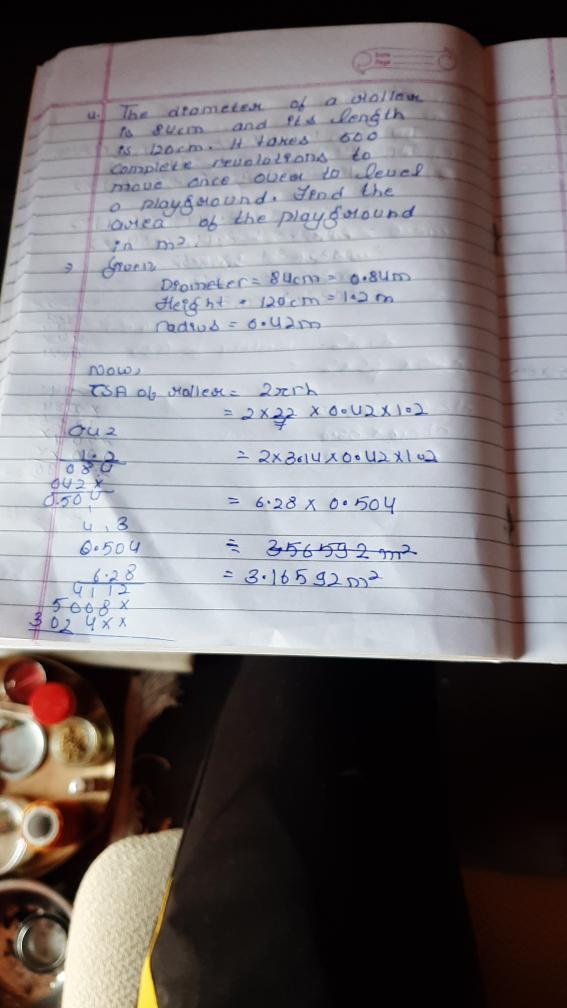 Date
Page
4. The diameter of a roller
is 84cm and its length
is 120cm. It takes 500
complete revolutions to
move once over to level
a playground. Find the
area of the playground
in m².
⇒ Given
Diameter = 84cm = 0.84m
Height = 120cm = 1.2m
radius = 0.42m
Now,
TSA of roller = 2πrh
= 2 × 22/7 × 0.42 × 1.2
= 2×3.14×0.42×1.2
= 6.28 × 0.504
= 356592 m²
= 3.16592m²
042
1.2
084
042×
0.504
4, 3
0.504
6.28
4112
5008×
3024××